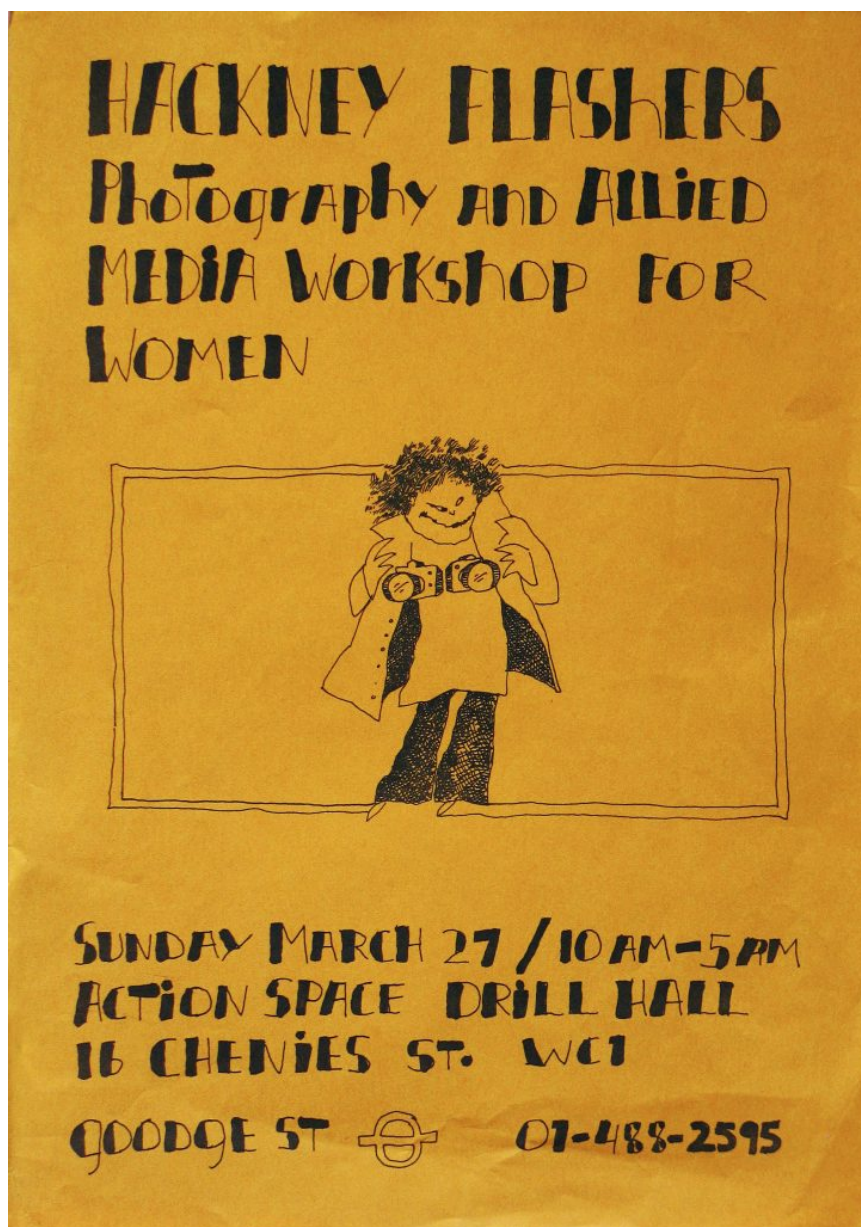 HACKNEY FLASHERS
Photography and ALLiED
MEDiA Workshop FOR
WOMEN
SUNDAY MARCH 27 / 10 AM-5 PM
ACTiON SPACE DRiLL HALL
16 CHENiES ST. WC1
GOODGE ST 01-488-2595